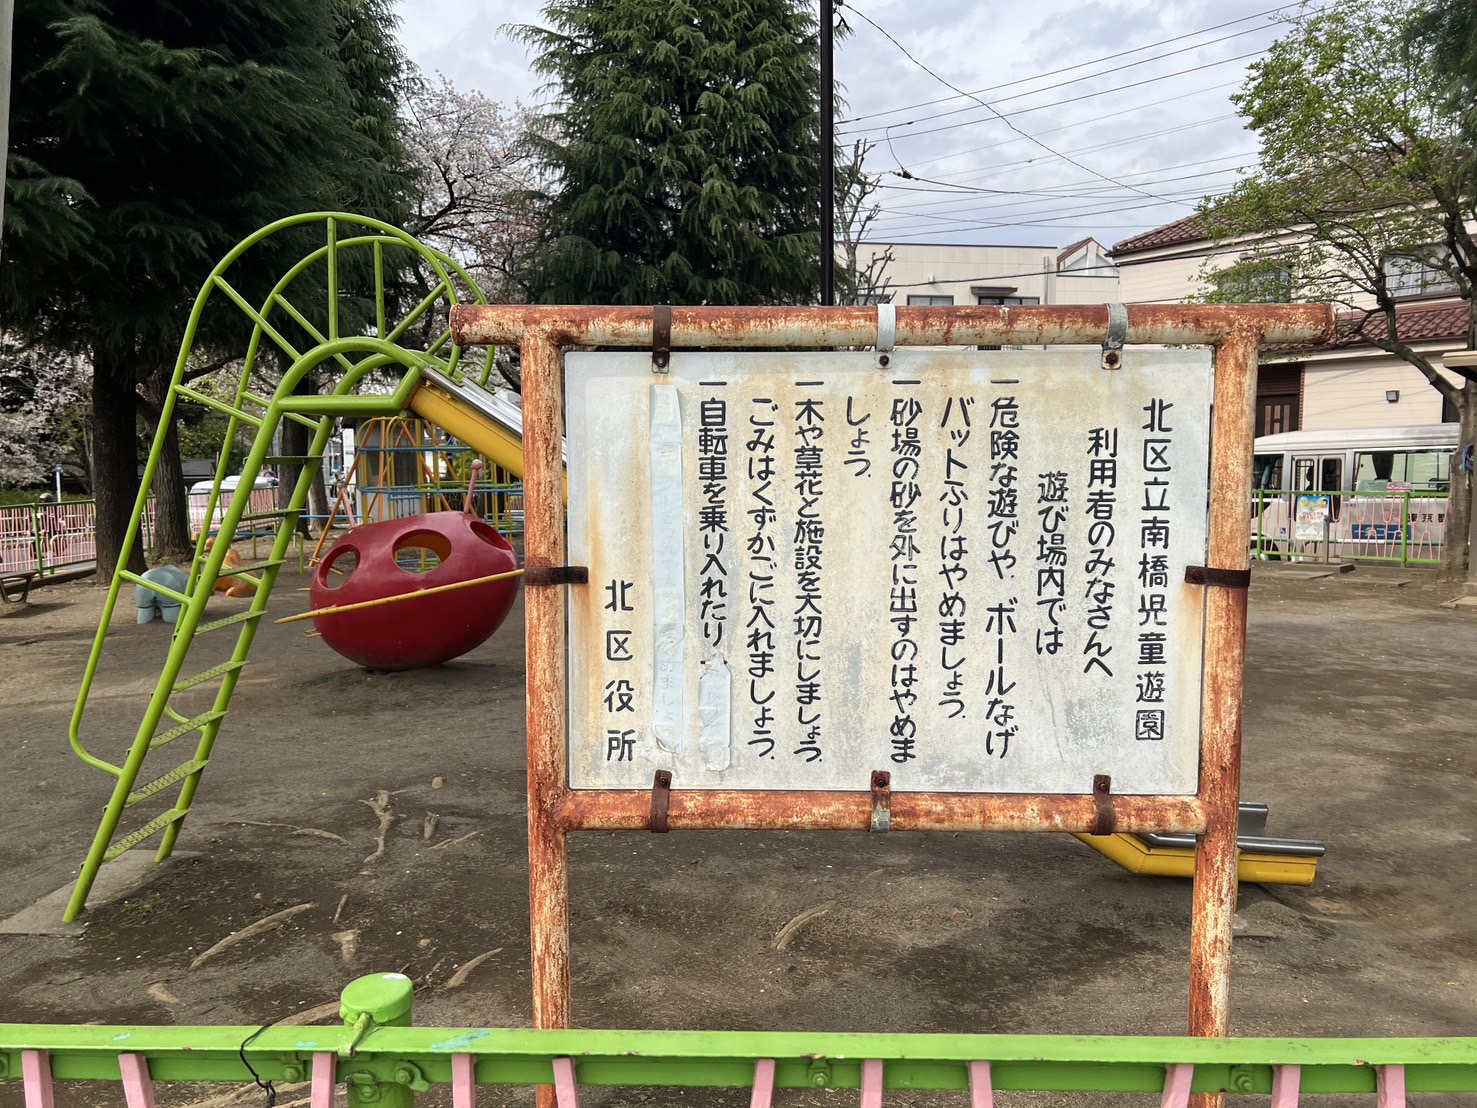 北区立南橋児童遊園
利用者のみなさんへ
遊び場内では
一危険な遊びや、ボールなげ
バットふりはやめましょう。
一砂場の砂を外に出すのはやめま
しょう。
一木や草花と施設を大切にしましょう。
ごみはくずかごに入れましょう。
一自転車を乗り入れたり
北区役所